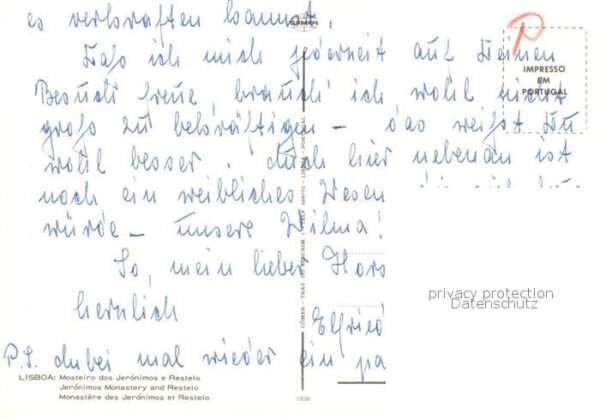 es verkraften kannst.
CÓMER
Daß ich mich jederzeit auf Deinen
Besuch freue, brauch' ich wohl nicht
groß zu bekräftigen – das weißt Du
wohl besser. Auch hier nebenan ist
noch ein weibliches Wesen
würde – unsere Wilma!
So, mein lieber Hors
herzlich
Elfried
P.S. anbei mal wieder ein pa
P
IMPRESSO
EM
PORTUGAL
privacy protection
Datenschutz
LISBOA: Mosteiro dos Jerónimos e Restelo
Jerónimos Monastery and Restelo
Monastère des Jerónimos et Restelo
LISBOA - PORTUGAL
CÓMER - TRAV. DO